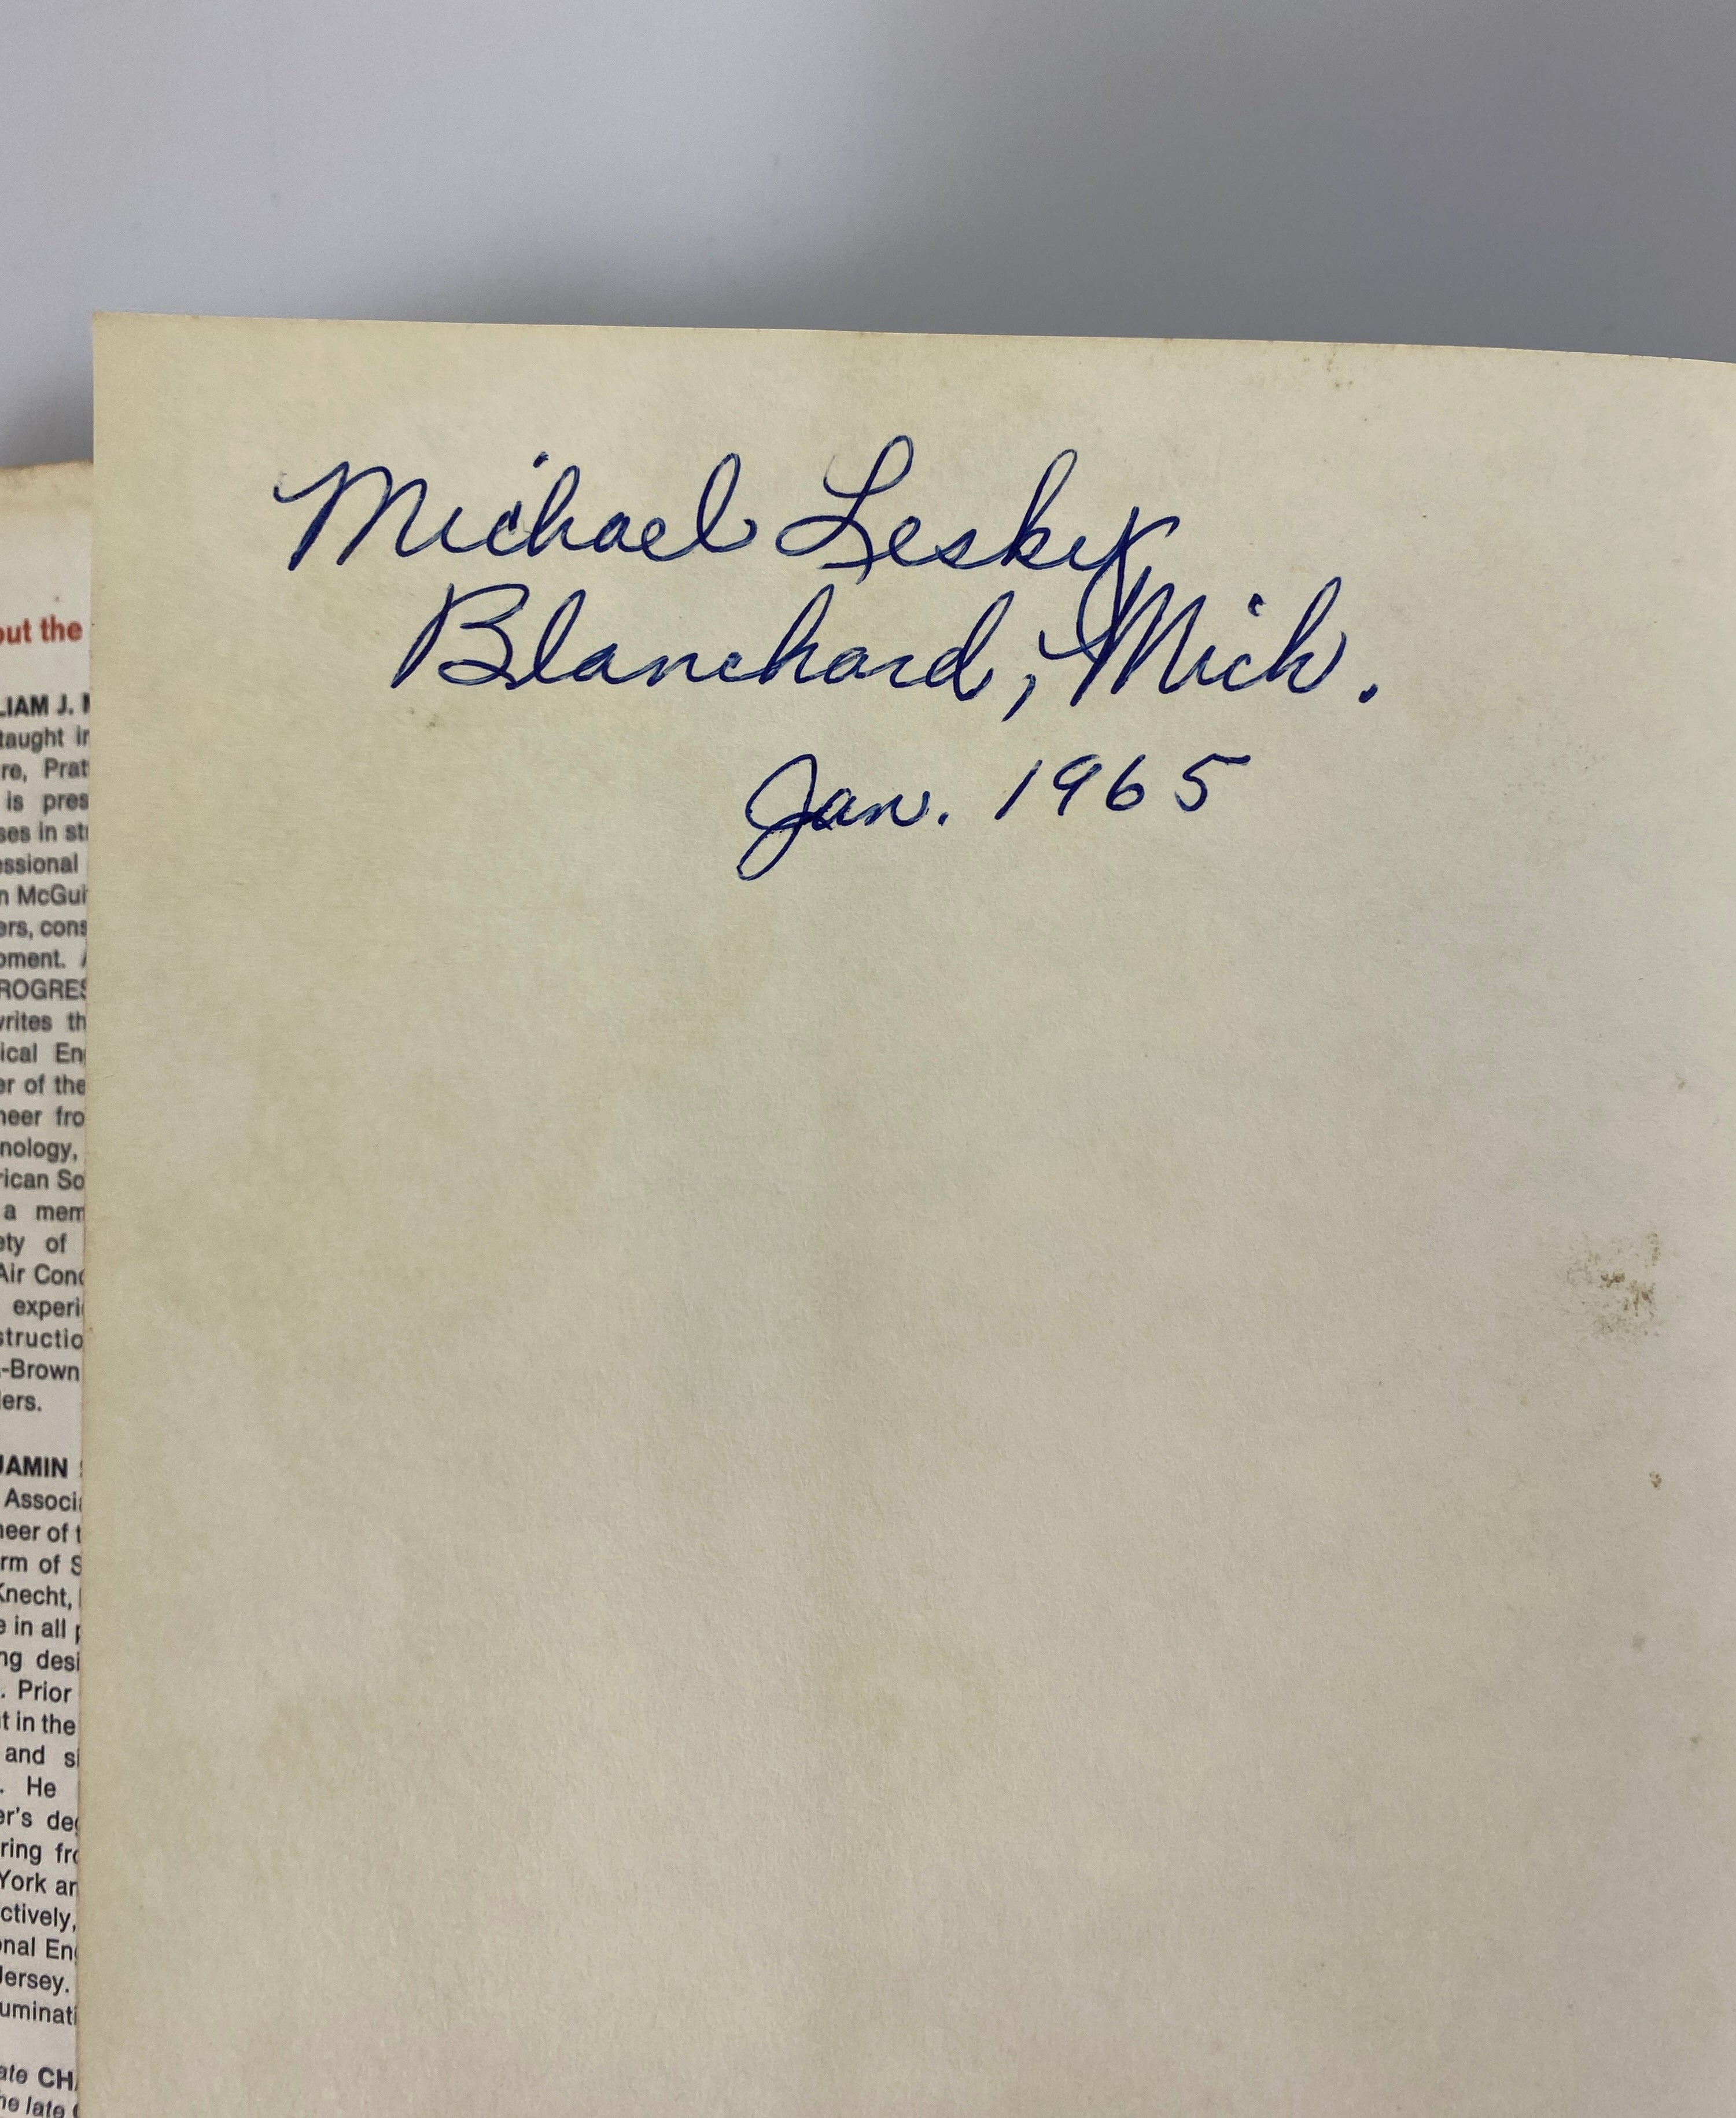 Michael Leskey
Blanchard, Mich.
Jan. 1965
out the
LIAM J.
taught
re, Prat
is pres
ses in
essional
n McGui
ers, cons
pment.
ROGRES
writes th
ical En
er of the
neer fro
nology,
rican So
a mem
ety of
Air Con
experi
structio
-Brown
lers.
JAMIN
Associ
neer of
rm of S
Knecht,
e in all
ng desi
. Prior
t in the
and
. He
er's
ring
York
ctively,
onal
Jersey.
uminati
ate CH
he late